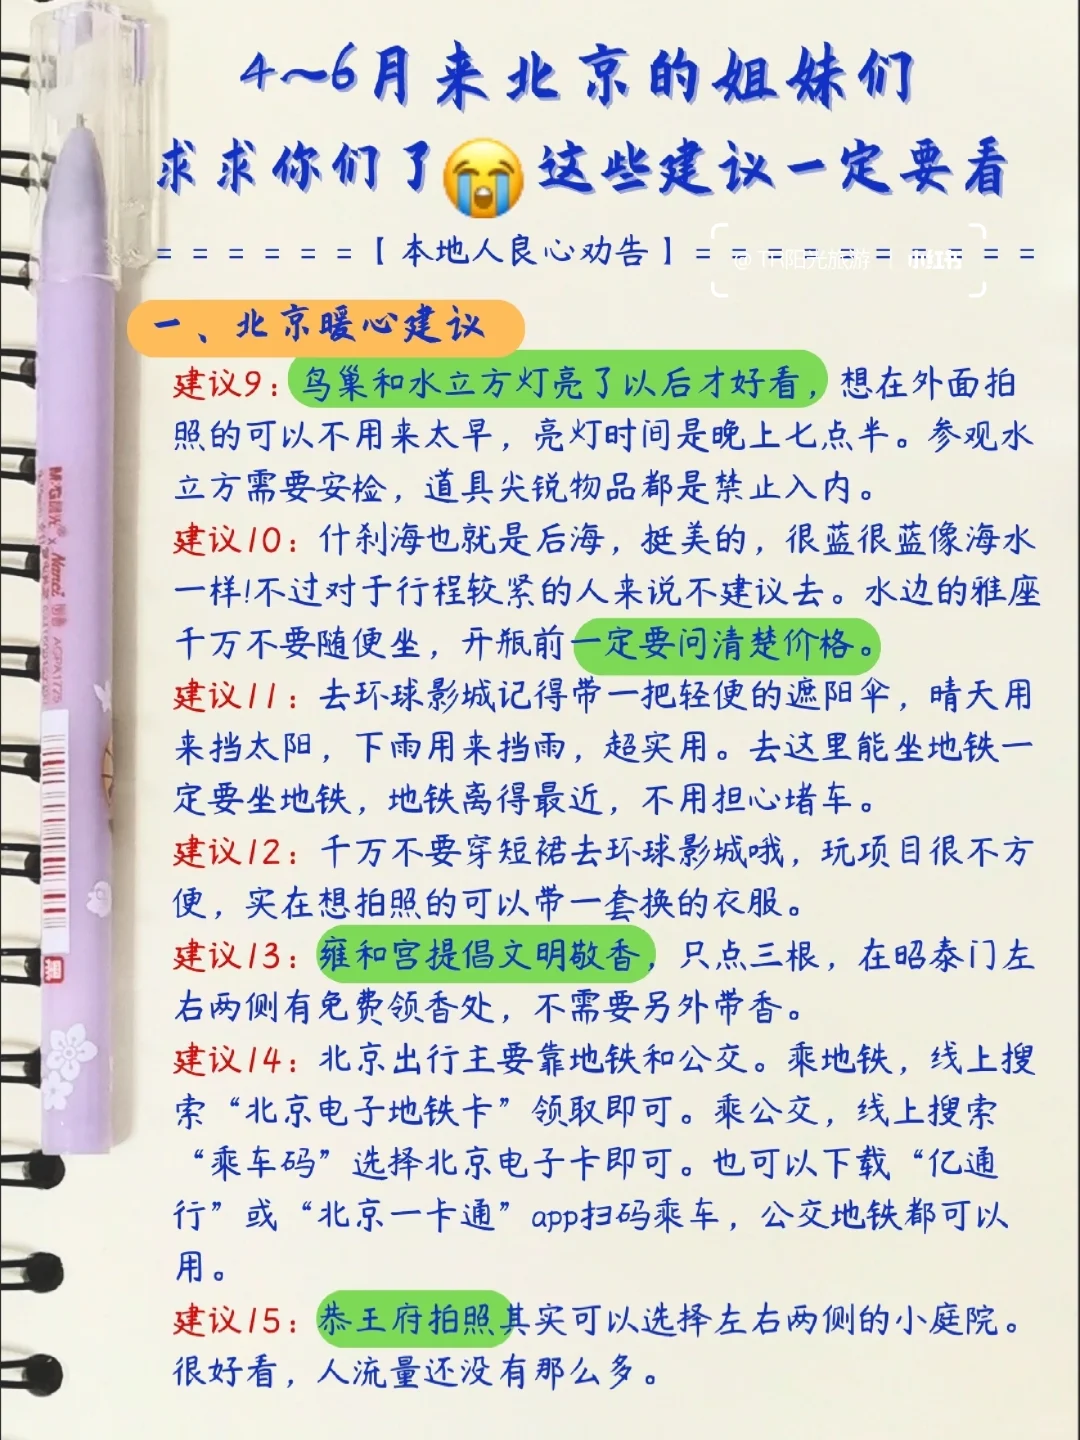 4~6月来北京的姐妹们
求求你们了😭这些建议一定要看
======【本地人良心劝告】==========
@TH阳光旅游 | 小红书
一、北京暖心建议
建议9：鸟巢和水立方灯亮了以后才好看，想在外面拍
照的可以不用来太早，亮灯时间是晚上七点半。参观水
立方需要安检，道具尖锐物品都是禁止入内。
建议10：什刹海也就是后海，挺美的，很蓝很蓝像海水
一样!不过对于行程较紧的人来说不建议去。水边的雅座
千万不要随便坐，开瓶前一定要问清楚价格。
建议11：去环球影城记得带一把轻便的遮阳伞，晴天用
来挡太阳，下雨用来挡雨，超实用。去这里能坐地铁一
定要坐地铁，地铁离得最近，不用担心堵车。
建议12：千万不要穿短裙去环球影城哦，玩项目很不方
便，实在想拍照的可以带一套换的衣服。
建议13：雍和宫提倡文明敬香，只点三根，在昭泰门左
右两侧有免费领香处，不需要另外带香。
建议14：北京出行主要靠地铁和公交。乘地铁，线上搜
索“北京电子地铁卡”领取即可。乘公交，线上搜索
“乘车码”选择北京电子卡即可。也可以下载“亿通
行”或“北京一卡通”app扫码乘车，公交地铁都可以
用。
建议15：恭王府拍照其实可以选择左右两侧的小庭院。
很好看，人流量还没有那么多。
M&G晨光® x Nanci
黑